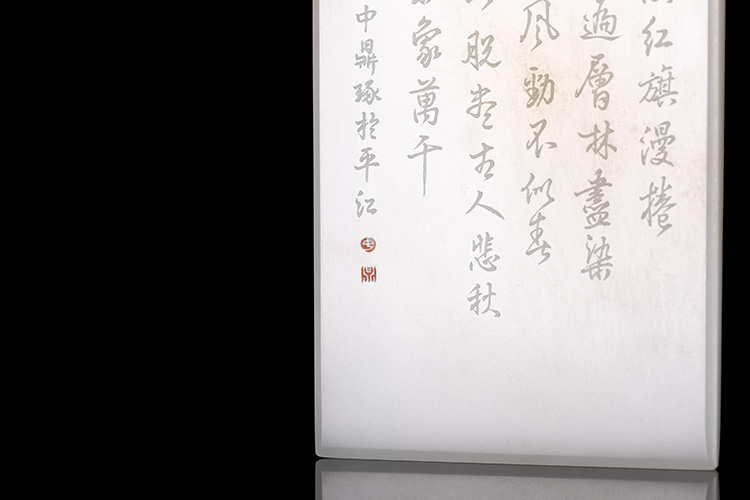 红旗漫捲
遍層林盡染
风勁不似春
脱尽古人悲秋
象萬千
中鼎琢於平江
鼎